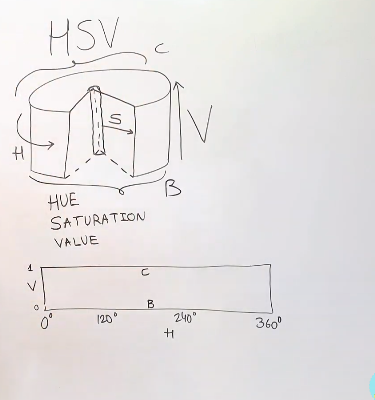 HSV
C
S
V
H
B
HUE
SATURATION
VALUE
1
C
V
0
B
0° 120° 240° 360°
H